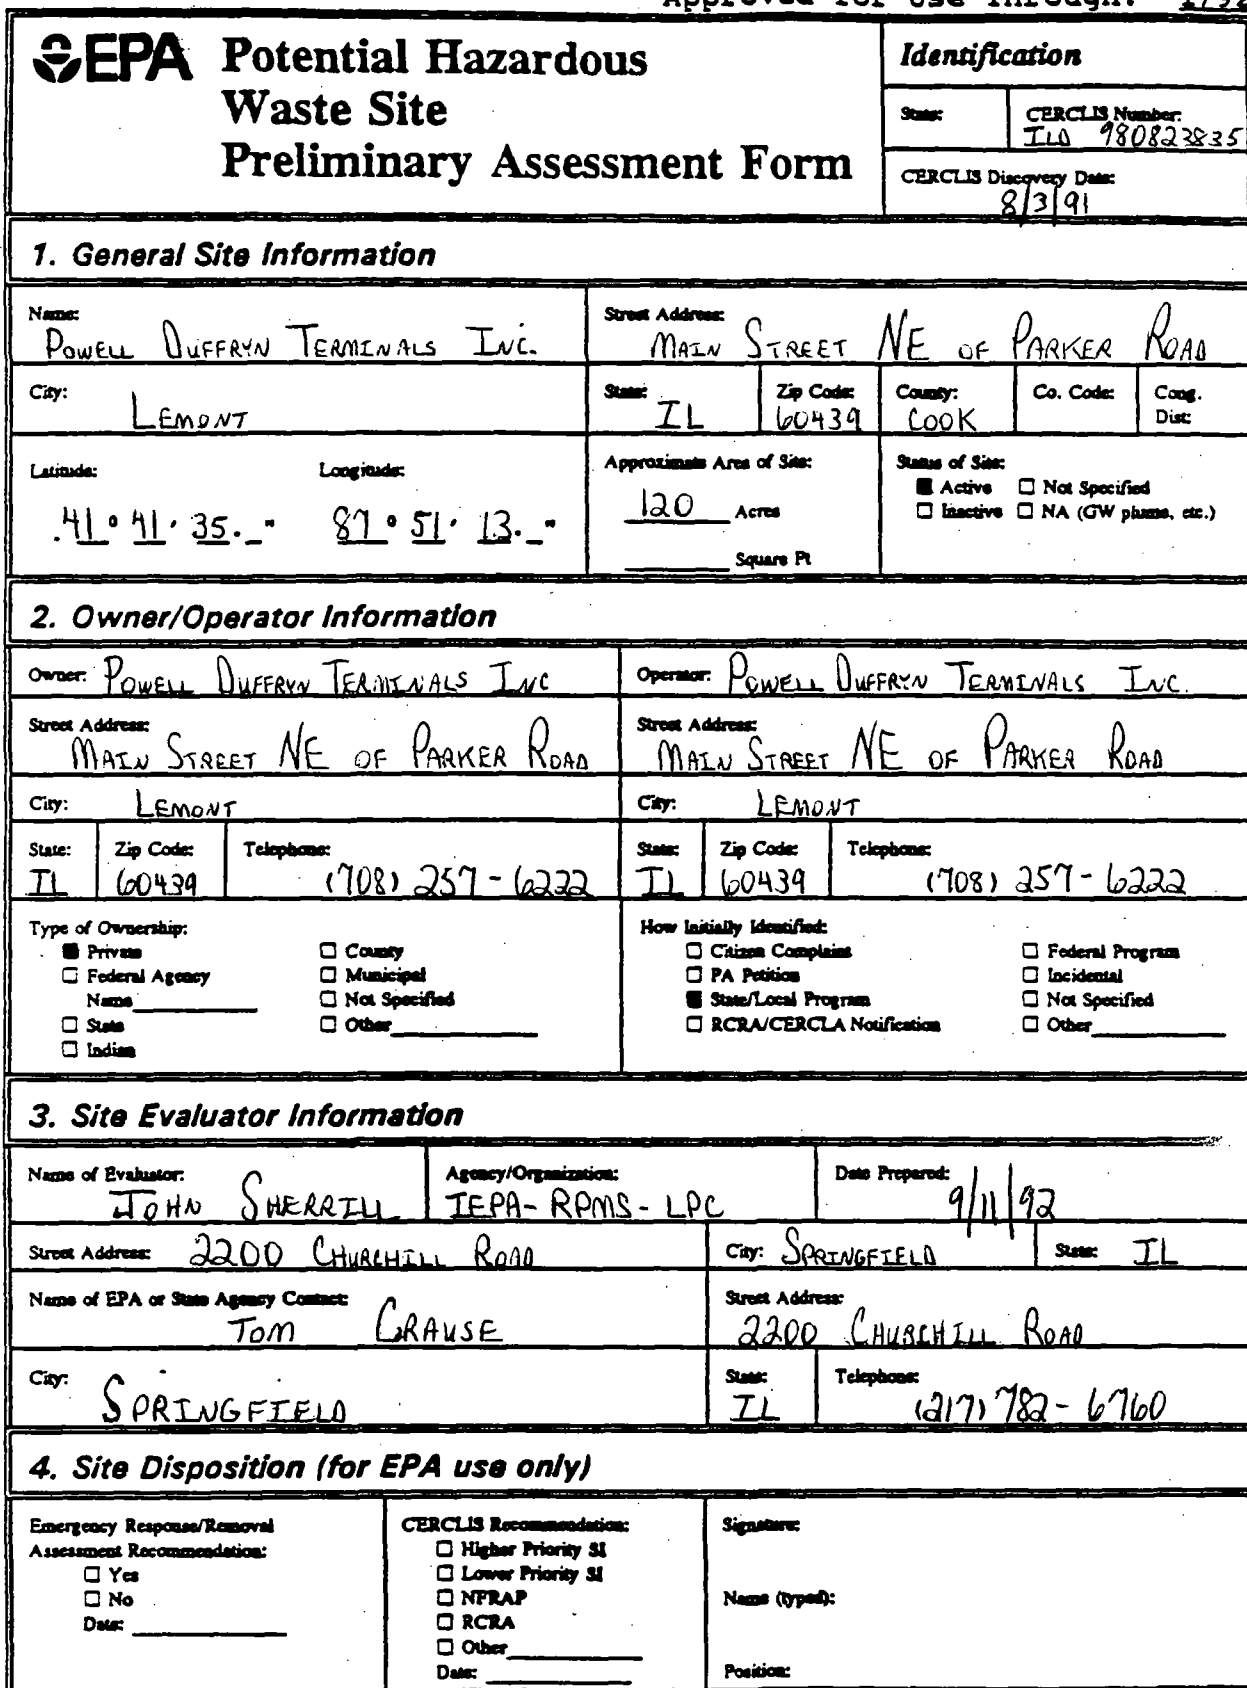 Approved for Use Through:
EPA Potential Hazardous
Waste Site
Preliminary Assessment Form
Identification
State:
CERCLIS Number:
ILD 980823835
CERCLIS Discovery Date:
8/3/91
1. General Site Information
Name:
POWELL DUFFRYN TERMINALS INC.
Street Address:
MAIN STREET NE OF PARKER ROAD
City:
LEMONT
State:
IL
Zip Code:
60439
County:
COOK
Co. Code:
Cong.
Dist:
Latitude:
41 ° 41 ' 35. _ "
Longitude:
87 ° 51 ' 13. _ "
Approximate Area of Site:
120 Acres
Square Ft
Status of Site:
■ Active □ Not Specified
□ Inactive □ NA (GW plume, etc.)
2. Owner/Operator Information
Owner: POWELL DUFFRYN TERMINALS INC
Street Address:
MAIN STREET NE OF PARKER ROAD
City: LEMONT
State:
IL
Zip Code:
60439
Telephone:
(708) 257-6222
Type of Ownership:
■ Private □ County
□ Federal Agency □ Municipal
Name □ Not Specified
□ State □ Other
□ Indian
Operator: POWELL DUFFRYN TERMINALS INC.
Street Address:
MAIN STREET NE OF PARKER ROAD
City: LEMONT
State:
IL
Zip Code:
60439
Telephone:
(708) 257-6222
How Initially Identified:
□ Citizen Complaint □ Federal Program
□ PA Petition □ Incidental
■ State/Local Program □ Not Specified
□ RCRA/CERCLA Notification □ Other
3. Site Evaluator Information
Name of Evaluator:
JOHN SHERRILL
Agency/Organization:
IEPA-RPMS-LPC
Date Prepared:
9/11/92
Street Address: 2200 CHURCHILL ROAD
City: SPRINGFIELD
State: IL
Name of EPA or State Agency Contact:
TOM CRAUSE
Street Address:
2200 CHURCHILL ROAD
City:
SPRINGFIELD
State:
IL
Telephone:
(217) 782-6760
4. Site Disposition (for EPA use only)
Emergency Response/Removal
Assessment Recommendation:
□ Yes
□ No
Date:
CERCLIS Recommendation:
□ Higher Priority SI
□ Lower Priority SI
□ NFRAP
□ RCRA
□ Other
Date:
Signature:
Name (typed):
Position: